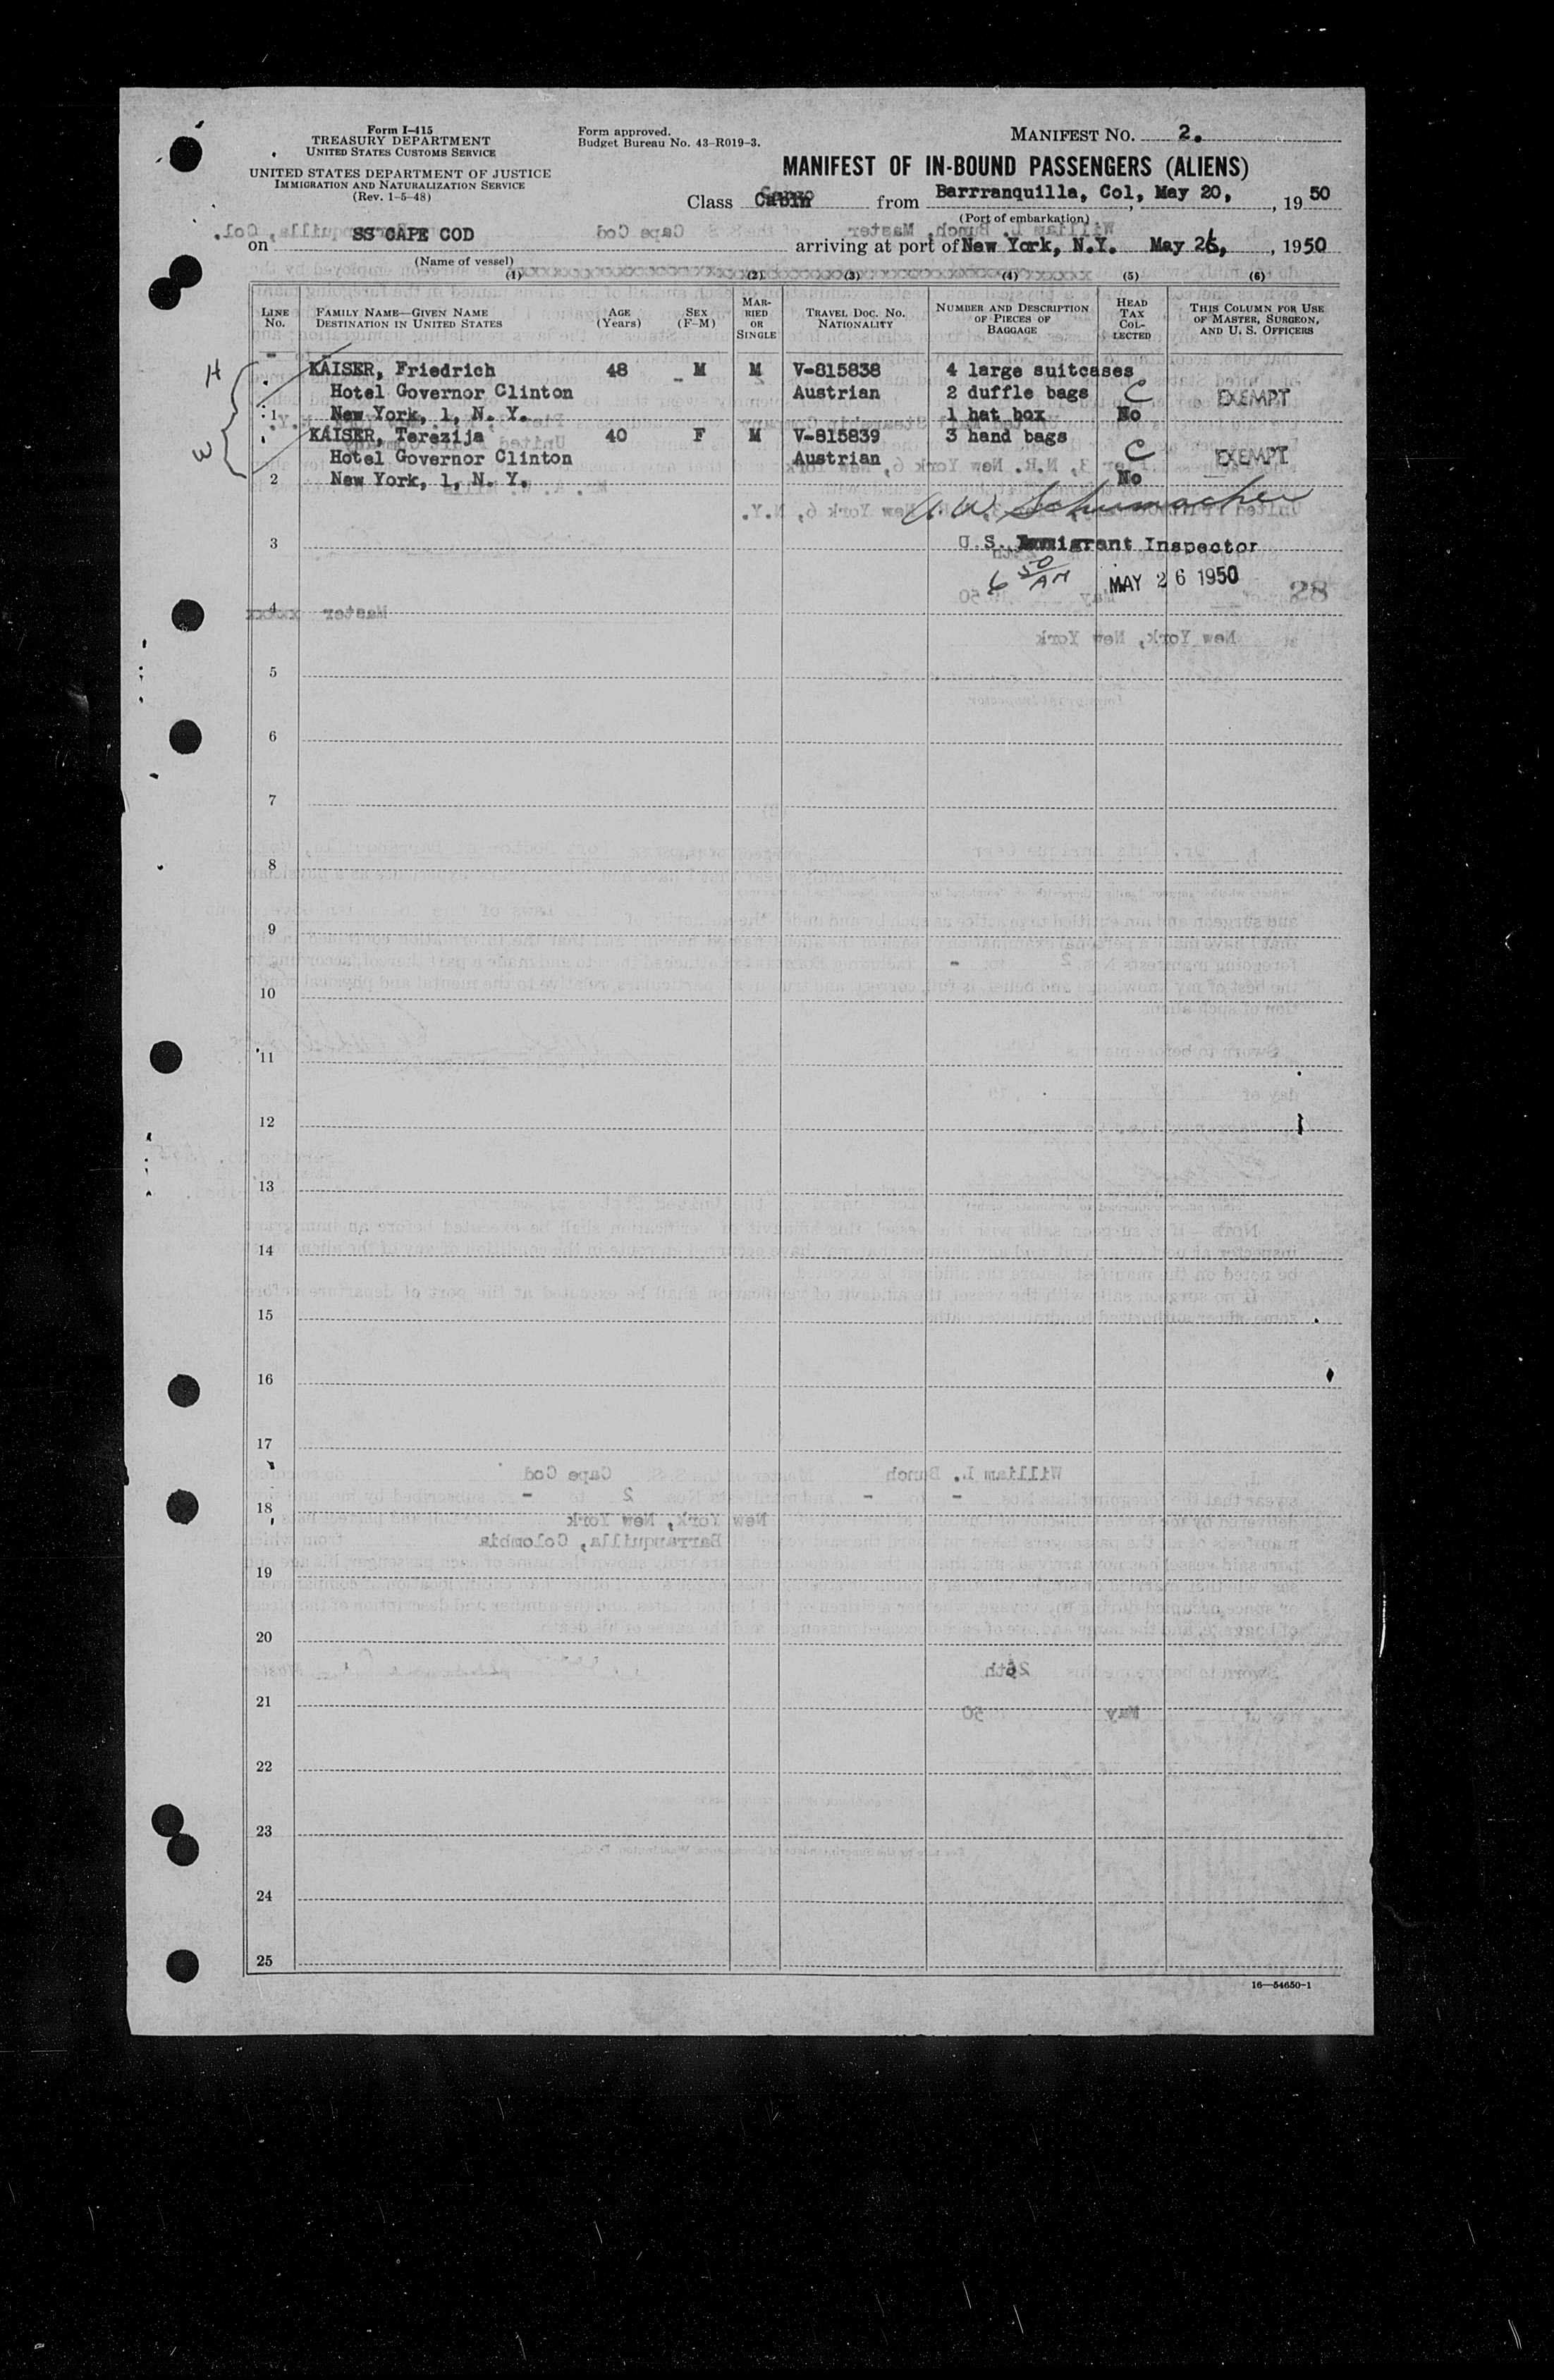 Form I-415
TREASURY DEPARTMENT
UNITED STATES CUSTOMS SERVICE
UNITED STATES DEPARTMENT OF JUSTICE
IMMIGRATION AND NATURALIZATION SERVICE
(Rev. 1-5-48)
Form approved.
Budget Bureau No. 43-R019-3.
MANIFEST NO. 2.
MANIFEST OF IN-BOUND PASSENGERS (ALIENS)
Class Cabin from Barrranquilla, Col, May 20, , 1950
(Port of embarkation)
on SS CAPE COD arriving at port of New York, N.Y. May 26, , 1950
(Name of vessel)
(1) (2) (3) (4) (5) (6)
LINE No. FAMILY NAME—GIVEN NAME DESTINATION IN UNITED STATES AGE (Years) SEX (F-M) MARRIED OR SINGLE TRAVEL DOC. NO. NATIONALITY NUMBER AND DESCRIPTION OF PIECES OF BAGGAGE HEAD TAX COLLECTED THIS COLUMN FOR USE OF MASTER, SURGEON, AND U. S. OFFICERS
H KAISER, Friedrich 48 M M V-815838 4 large suitcases
Hotel Governor Clinton Austrian 2 duffle bags C EXEMPT
1 New York, 1, N. Y. 1 hat box No
W KAISER, Terezija 40 F M V-815839 3 hand bags
Hotel Governor Clinton Austrian C EXEMPT
2 New York, 1, N. Y. No
A. W. Schumacher
3 U.S. Immigrant Inspector
6 50 AM MAY 26 1950 28
4
5
6
7
8
9
10
11
12
13
14
15
16
17
18
19
20
21
22
23
24
25
16—54650-1